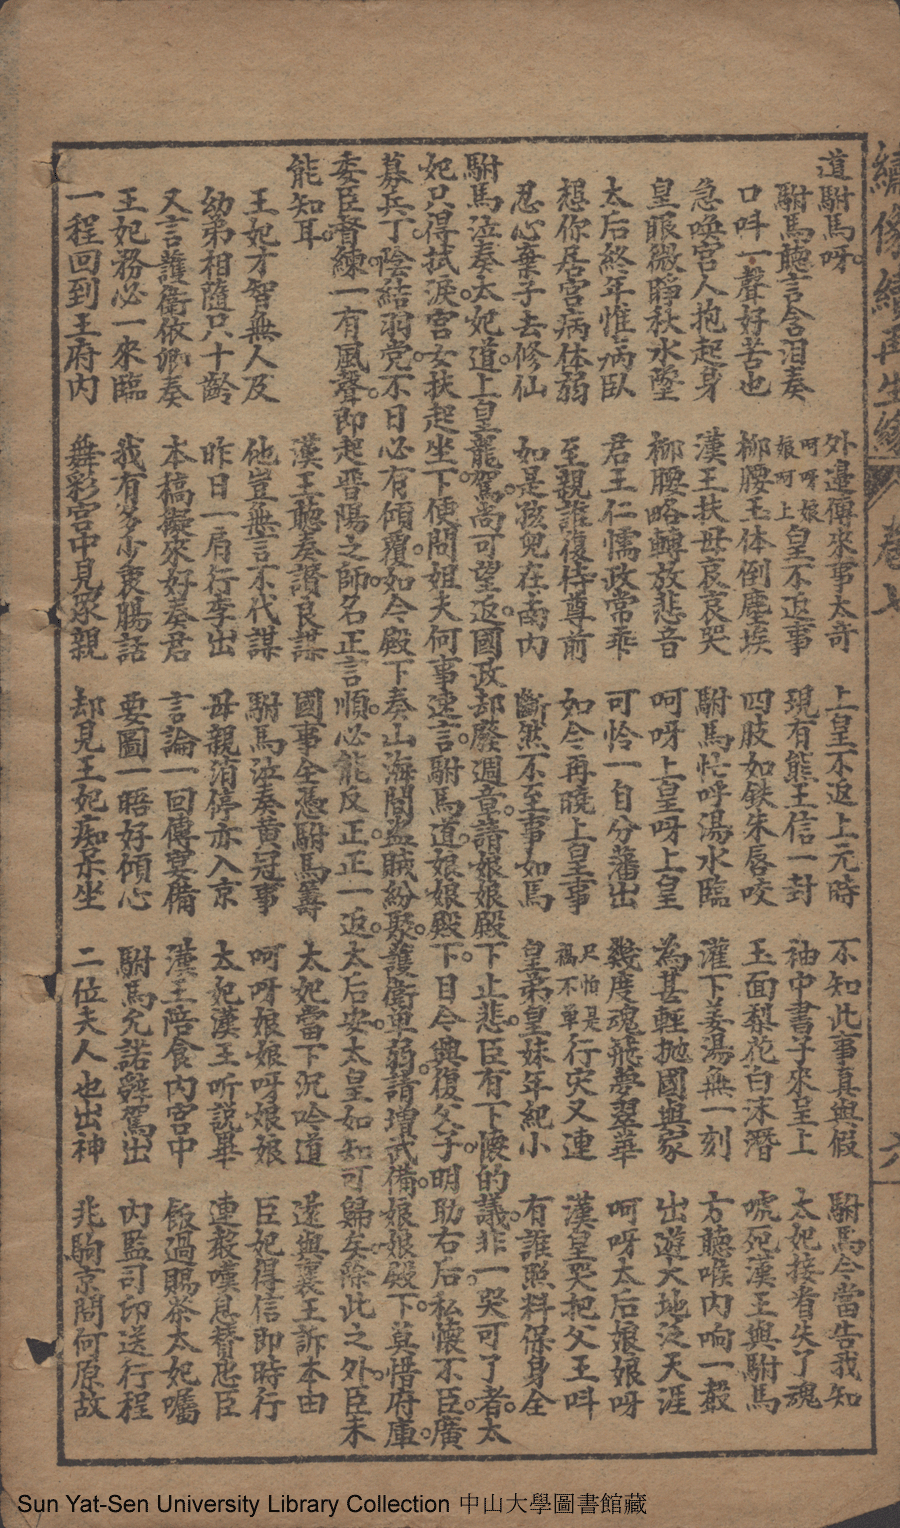 繡像續再生緣 卷七 六
道駙馬呀。 外邊傳來事太奇 上皇不返上元時 不知此事真與假 駙馬今當告我知
駙馬聽言含泪奏 呵呀娘娘呵上皇不返事 現有熊王信一封 袖中書子來呈上 太妃接着失了魂
口叫一聲好苦也 柳腰玉体倒塵埃 四肢如鉄朱唇咬 玉面梨花白沫潛 唬死漢王與駙馬
急喚宮人抱起身 漢王扶母哀哀哭 駙馬忙呼湯水臨 灌下姜湯無一刻 方聽喉内响一聲
皇眼微睜秋水瑩 柳腰略轉放悲音 呵呀上皇呀上皇 為甚輕抛國與家 出遊大地泛天涯
太后終年惟病臥 君王仁懦政常乖 可怜一自分藩出 幾度魂飛夢翠華 呵呀太后娘娘呀
想你居宮病体弱 至親誰復侍尊前 如今再曉上皇事 只怕是禍不單行灾又連 漢皇哭把父王叫
忍心棄子去修仙 如是孩兒在南内 斷然不至事如馬 皇弟皇妹年紀小 有誰照料保身全
駙馬泣奏。太妃道。上皇龍駕尚可望返。國政却廢週章。請娘娘殿下止悲。臣有下懷的議。非一哭可了者。太
妃只得拭淚。宮女扶起坐下。便問姐夫何事速言。駙馬道。娘娘殿下。目今興復父子。明助右后。私懷不臣。廣
募兵丁。陰結羽党。不日必有傾覆。如今殿下奏山海關盗賊紛聚。護衛单弱。請増武備。娘娘殿下。莫惜府庫。
委臣督練。一有風聲。即起晋陽之師。名正言順。必能反正。正一返。太后安。太皇如知可歸矣。除此之外。臣未
能知耳。 漢王聽奏讚良謀 國事全憑駙馬籌 太妃當下沉吟道 遂與襄王訴本由
王妃才智無人及 他豈無言不代謀 駙馬泣奏黄冠事 呵呀娘娘呀娘娘 臣妃得信即時行
幼弟相隨只十齡 昨日一肩行李出 母親消停亦入京 太妃漢王听説畢 連聲嘆息賛忠臣
又言護衛依卿奏 本稿擬來好奏君 言論一回傳宴備 漢王陪食内宮中 飯過賜茶太妃囑
王妃務必一來臨 我有多少衷腸話 要圖一晤好傾心 駙馬允諾辞駕出 内監司印送行程
一程回到王府内 舞彩宮中見家親 却見王妃痴呆坐 二位夫人也出神 兆駒京問何原故
Sun Yat-Sen University Library Collection 中山大學圖書館藏